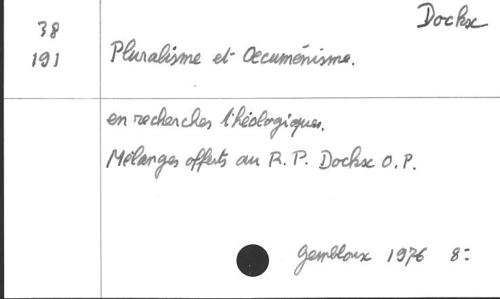 Dockx
38
191
Pluralisme et Œcuménisme.
en recherches théologiques.
Mélanges offerts au R. P. Dockx O.P.
Gembloux 1976 8: